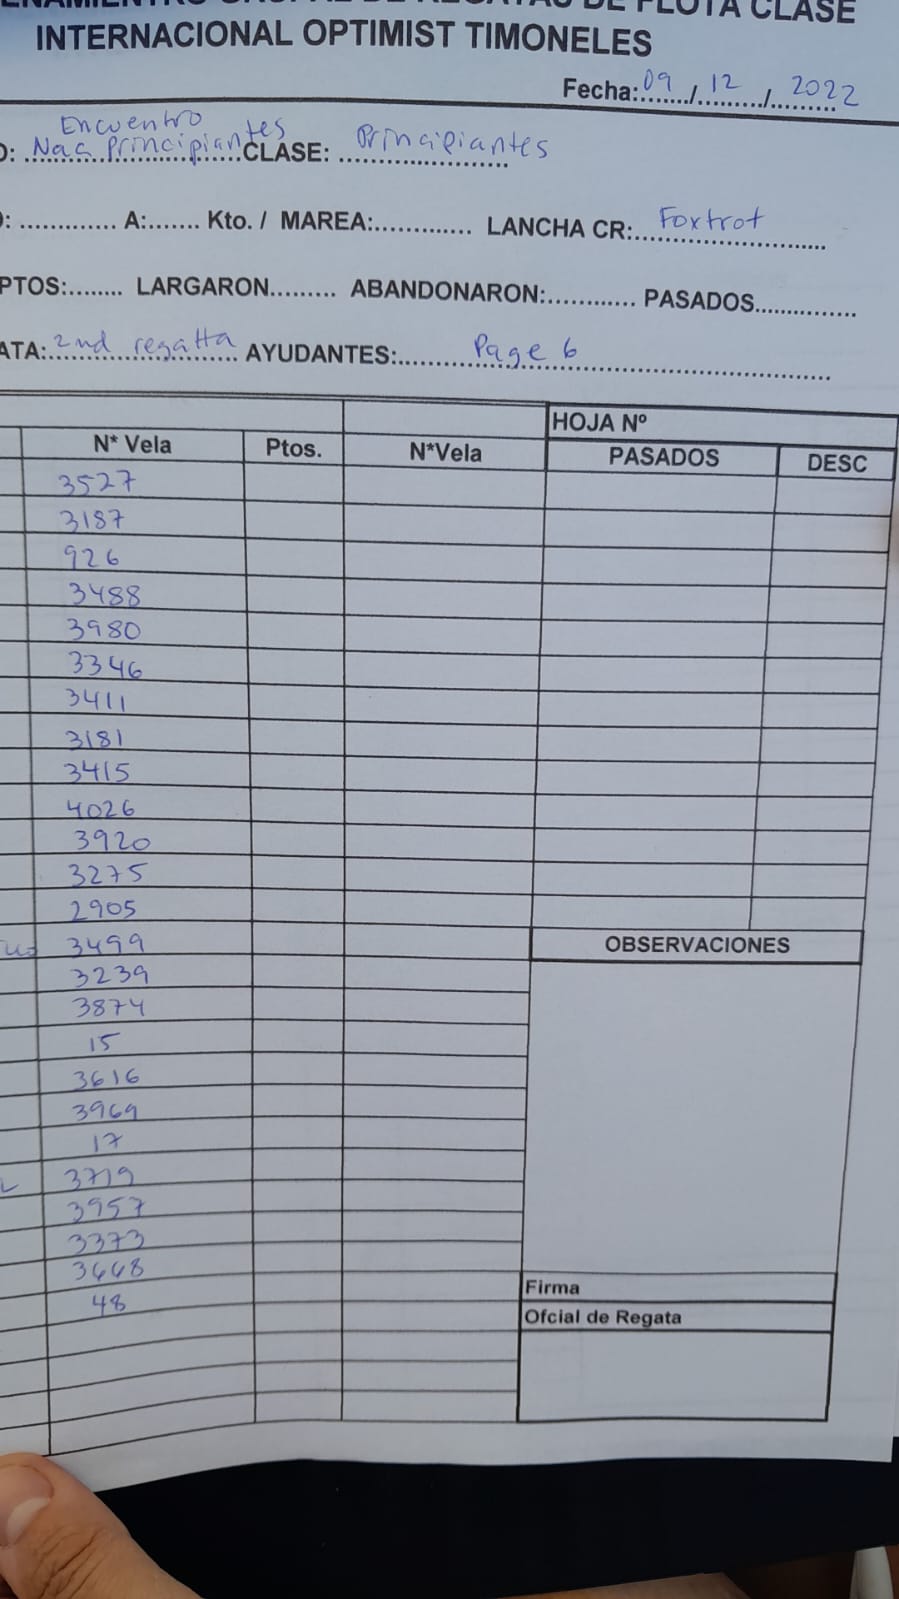 ENAMIENTRO GRUPAL DE REGATAS DE FLOTA CLASE
INTERNACIONAL OPTIMIST TIMONELES
Fecha:09/12/2022
Encuentro
O: Nac principiantes CLASE: Principiantes
O: ............. A:....... Kto. / MAREA:............. LANCHA CR: Foxtrot
PTOS:........ LARGARON......... ABANDONARON:............ PASADOS...............
ATA: 2nd regatta AYUDANTES: Page 6
HOJA Nº
N* Vela Ptos. N*Vela PASADOS DESC
3527
3187
926
3488
3980
3346
3411
3181
3415
4026
3920
3275
2905
3499
3239
3874
15
3616
3969
17
3719
3957
3373
3668
48
OBSERVACIONES
Firma
Ofcial de Regata